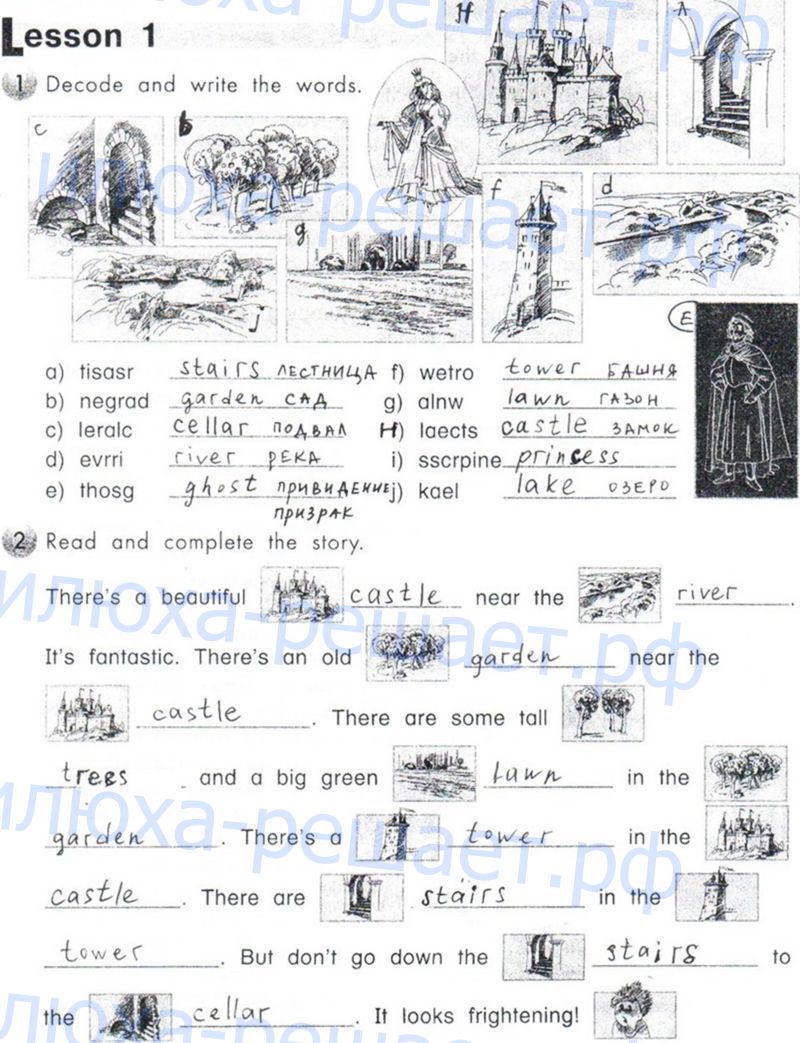 Lesson 1
1 Decode and write the words.
H
A
c
b
f
d
g
J
E
a) tisasr stairs ЛЕСТНИЦА f) wetro tower БАШНЯ
b) negrad garden САД g) alnw lawn ГАЗОН
c) leralc cellar ПОДВАЛ H) laects castle ЗАМОК
d) evrri river РЕКА i) sscrpine princess
e) thosg ghost ПРИВИДЕНИЕ j) kael lake ОЗЕРО
ПРИЗРАК
2 Read and complete the story.
There's a beautiful castle near the river.
It's fantastic. There's an old garden near the
castle. There are some tall
trees and a big green lawn in the
garden. There's a tower in the
castle. There are stairs in the
tower. But don't go down the stairs to
the cellar. It looks frightening!
илюха-решает.рф
илюха-решает.рф
илюха-решает.рф
илюха-решает.рф
илюха-решает.рф